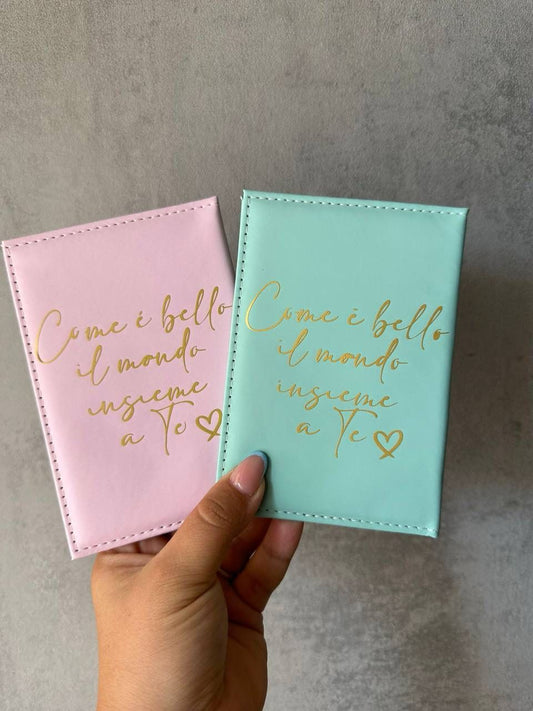 Come é bello
il mondo
insieme
a Te
Come é bello
il mondo
insieme
a Te